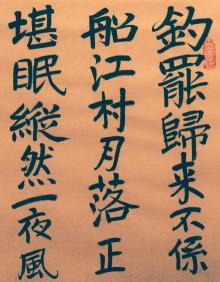 釣罷歸来不係
船江村月落正
堪眠縱然一夜風